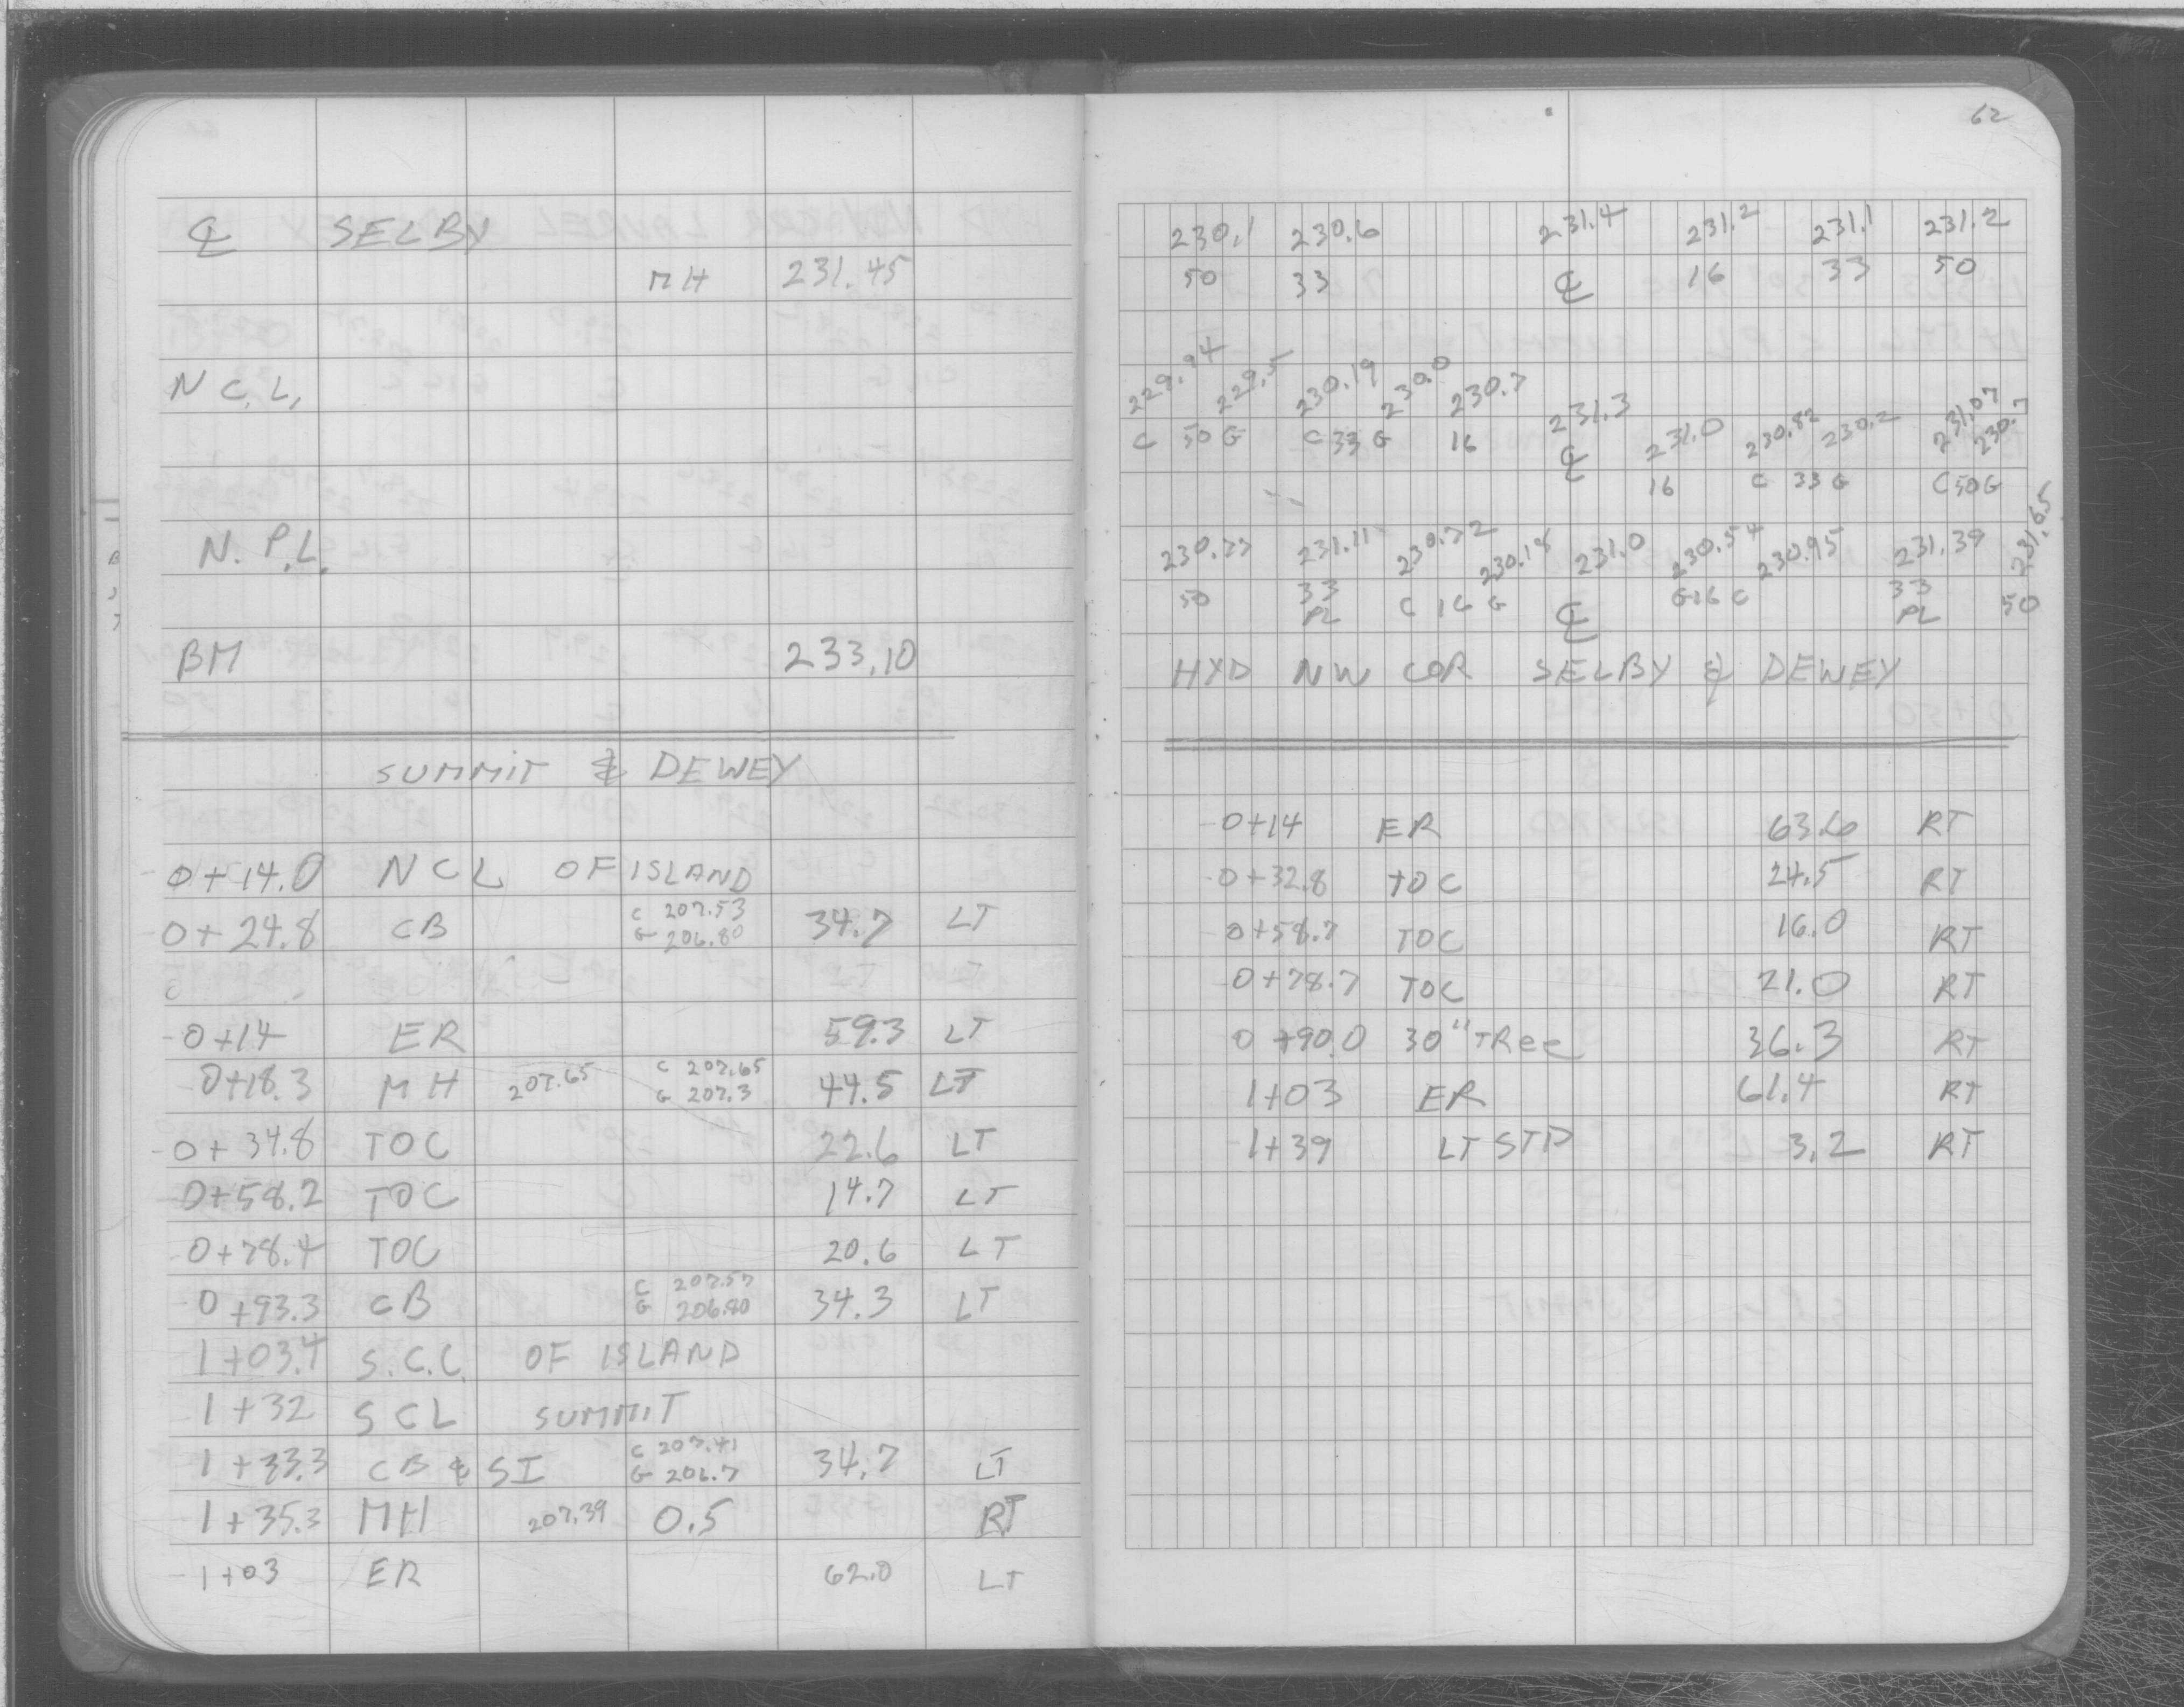 ℄ SELBY
MH 231.45
N C.L.
N. P.L.
BM 233.10
SUMMIT & DEWEY
0+14.0 NCL OF ISLAND
0+24.8 CB C 207.53 G 206.80 34.7 LT
0+14 ER 59.3 LT
0+18.3 MH 207.65 C 207.65 G 207.3 44.5 LT
0+34.8 TOC 22.6 LT
0+58.2 TOC 14.7 LT
0+78.4 TOC 20.6 LT
0+93.3 CB C 207.57 G 206.80 34.3 LT
1+03.4 S.C.L. OF ISLAND
1+32 SCL SUMMIT
1+33.3 CB & SI C 207.41 G 206.7 34.7 LT
1+35.3 MH 207.39 0.5 RT
1+03 ER 62.0 LT
62
230.1 230.6 231.4 231.2 231.1 231.2
50 33 ℄ 16 33 50
229.94 229.5 230.19 230.0 230.7 231.3 231.0 230.82 230.2 231.07 230.7
C 50 G C 33 G 16 ℄ 16 C 33 G C 50 G
230.77 231.11 230.72 230.18 231.0 230.54 230.95 231.39 231.65
50 33 PL C 16 G ℄ G 16 C 33 PL 50
HYD NW COR SELBY & DEWEY
0+14 ER 63.6 RT
0+32.8 TOC 24.5 RT
0+58.7 TOC 16.0 RT
0+78.7 TOC 21.0 RT
0+90.0 30" TRee 36.3 RT
1+03 ER 61.4 RT
1+39 LT STD 3.2 RT